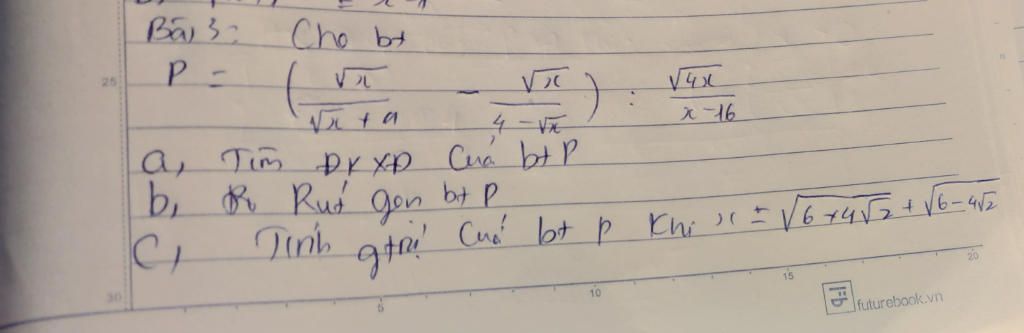 Bài 3: Cho bt
P = (√x / (√x + 4) − √x / (4 − √x)) : √4x / (x − 16)
a, Tìm ĐKXĐ Của bt P
b, Rút gọn bt P
C, Tính gtrị Của bt P Khi x = √(6+4√2) + √(6−4√2)
25
30
5
10
15
20
futurebook.vn